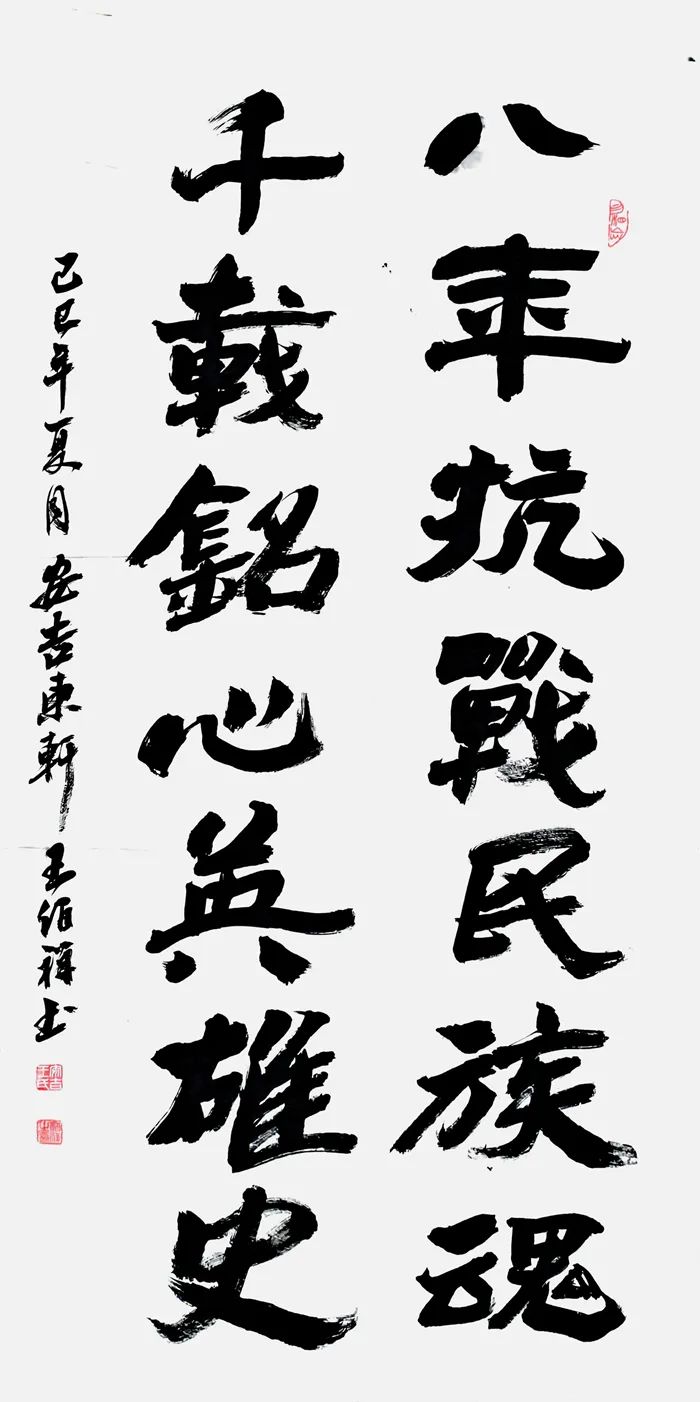 八年抗戰民族魂
千載銘心英雄史
乙巳年夏月安吉東軒王伯禄书